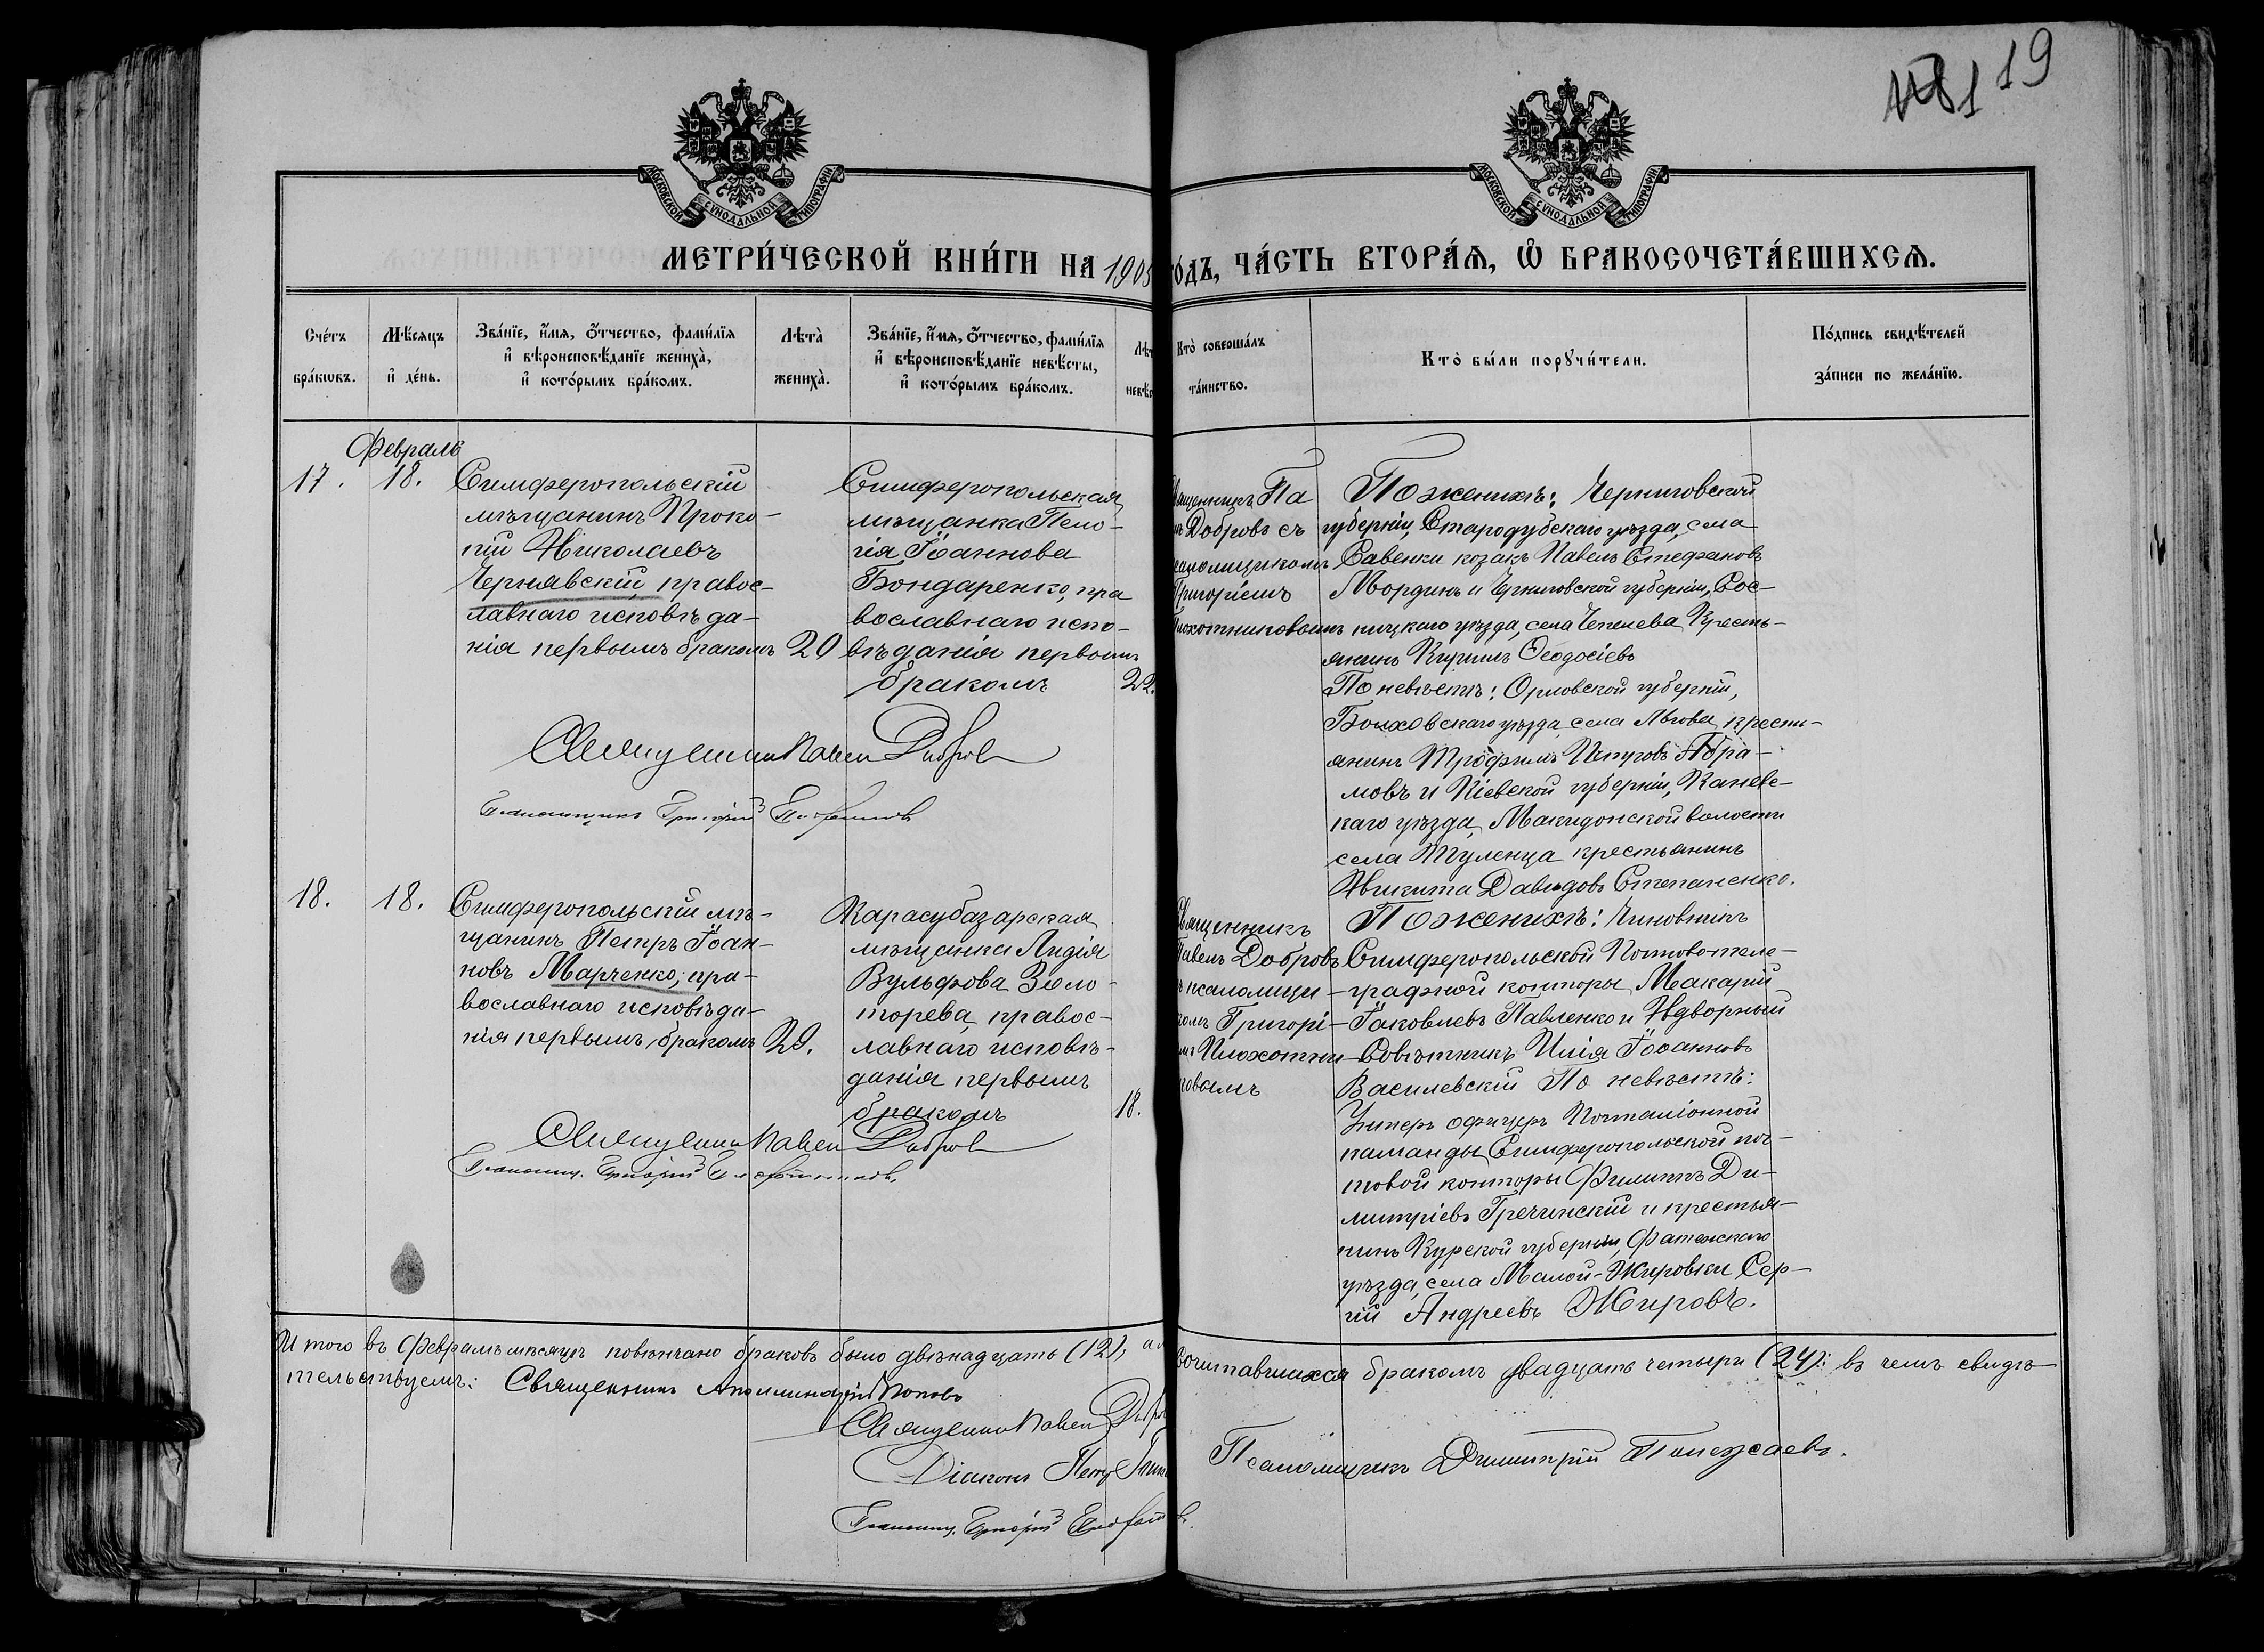 119
МОСКОВСКОЙ СѴНОДАЛЬНОЙ ТИПОГРАФІИ
МОСКОВСКОЙ СѴНОДАЛЬНОЙ ТИПОГРАФІИ
МЕТРИ́ЧЕСКОЙ КНИ́ГИ НА 1905
ГО́ДЪ, ЧА́СТЬ ВТОРА́Я, Ѡ҆ БРАКОСОЧЕТА́ВШИХСЯ.
Сче́тъ
бра́кѡвъ.
Мѣ́сяцъ
и҆ де́нь.
Зва́нїе, и҆́мя, ѻ҆́тчество, фами́лїя
и҆ вѣроисповѣ́данїе жениха̀,
и҆ кото́рымъ бра́комъ.
Лѣта̀
жениха̀.
Зва́нїе, и҆́мя, ѻ҆́тчество, фами́лїя
и҆ вѣроисповѣ́данїе невѣ́сты,
и҆ кото́рымъ бра́комъ.
Лѣт
невѣс
Кто̀ соверша́лъ
та́инство.
Кто̀ бы́ли порꙋчи́тели.
По́дпись свидѣ́телей
за́писи по жела́нїю.
Февраль
17.
18.
Симферопольскій
мѣщанинъ Проко-
пій Николаевъ
Чернявскій, правос-
лавнаго исповѣда-
нія первымъ бракомъ
20
Симферопольская
мѣщанка Пела-
гія Іоаннова
Бондаренко, пра
вославнаго испо-
вѣданія первымъ
бракомъ
22.
Священникъ Па
Добровъ съ
псаломщикомъ
Григоріемъ
Плохотниковымъ
По женихѣ: Черниговской
губерніи, Стародубскаго уѣзда, села
Савенки козакъ Павелъ Стефановъ
Мординъ и Черниговской губерніи, Сос-
ницкаго уѣзда, села Чепелева Кресть-
янинъ Кириллъ Ѳеодосіевъ
По невѣстѣ: Орловской губерніи,
Болховскаго уѣзда, села Льгова, крест-
янинъ Трофимъ Абра-
мовъ и Кіевской губерніи, Каневс-
каго уѣзда, Макидонской волости
села Туленца крестьянинъ
Никита Давидовъ Степаненко.
Священникъ Павелъ Добровъ
Псаломщикъ Григорій Плохотниковъ
18.
18.
Симферопольскій мѣ-
щанинъ Петръ Іоан-
новъ Марченко, пра-
вославнаго исповѣда-
нія первымъ бракомъ
Карасубазарская
мѣщанка Лидія
Вульфова Золо-
торева, правос-
лавнаго исповѣ-
данія первымъ
бракомъ
18.
Священникъ
Павелъ Добровъ
псаломщи-
комъ Григорі-
Плохотни-
ковымъ
По женихѣ: Чиновникъ
Симферопольской Почтовотеле-
графной конторы Макарій
Іаковлевъ Павленко и Надворный
Совѣтникъ Илія Іоанновъ
Василевскій По невѣстѣ:
Унтеръ офицеръ Почталіонной
команды Симферопольской поч-
товой конторы Филиппъ Ди-
митріевъ Гречинскій и крестья-
нинъ Курской губерніи, Фатежскаго
уѣзда, села Малой-Жировки, Сер-
гій Андреевъ Жировъ.
Священникъ Павелъ Добровъ
Псаломщ. Григорій Плохотниковъ.
Итого въ Февралѣ мѣсяцѣ повѣнчано браковъ было двѣнадцать (12), а
сочитавшихся бракомъ двадцать четыре (24): въ чемъ свидѣ-
тельствуемъ: Священникъ Аполлинарій Поповъ
Священникъ Павелъ Добро
Діаконъ Петръ
Псаломщ. Григорій Плохотн
Псаломщикъ Димитрій